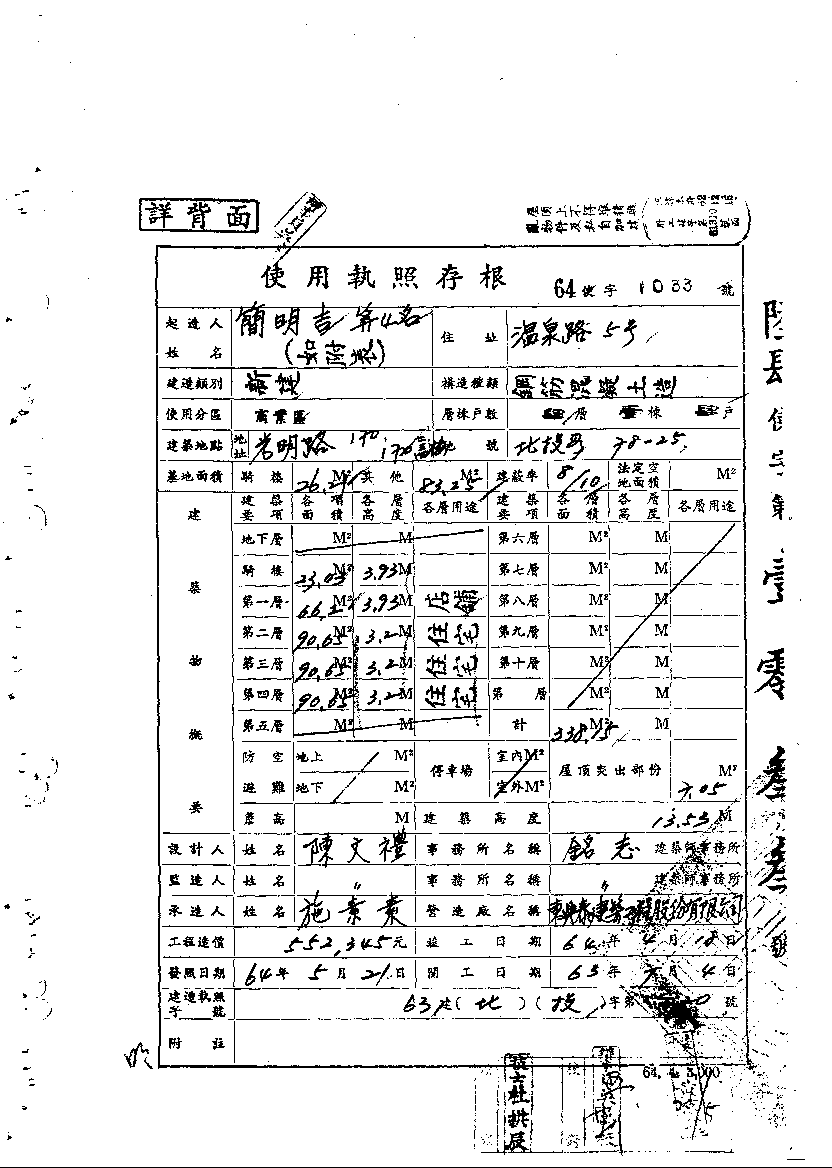 詳背面
屋頂上不得堆積雜
使用執照存根
64使字1033號
起造人姓名 簡明吉等4名(如附表) 住址 溫泉路5号
建造類別 新建 構造種類 鋼筋混凝土造
使用分區 商業區 層棟戶數 層 棟 戶
建築地點 地址 光明路170. 地號 北投段 78-25
基地面積 騎樓 26.21 M² 其他 83.25 M² 建蔽率 8/10 法定空地面積 M²
建築要項 各項面積 各層高度 各層用途 建築要項 各層面積 各層高度 各層用途
建築物概要
地下層 M² M 第六層 M² M
騎樓 23.05 M² 3.93 M 第七層 M² M
第一層 M² 3.93 M 店鋪 第八層 M² M
第二層 90.65 M² 3.2 M 住宅 第九層 M² M
第三層 90.65 M² 3.2 M 住宅 第十層 M² M
第四層 90.65 M² 3.2 M 住宅 第 層 M² M
第五層 M² M 計 338.75 M² M
防空避難 地上 M² 停車場 室內 M² 屋頂突出部份 7.05 M²
地下 M² 室外 M²
簷高 M 建築高度 13.53 M
設計人 姓名 陳文禮 事務所名稱 銘志 建築師事務所
監造人 姓名 〃 事務所名稱 〃 建築師事務所
承造人 姓名 施素貴 營造廠名稱 股份有限公司
工程造價 552,345元 竣工日期 64年4月18日
發照日期 64年5月21日 開工日期 63年 月4日
建造執照字號 63建(北)(投)字第 0號
附註
64. 4. 3,000
使字第壹零叁叁號